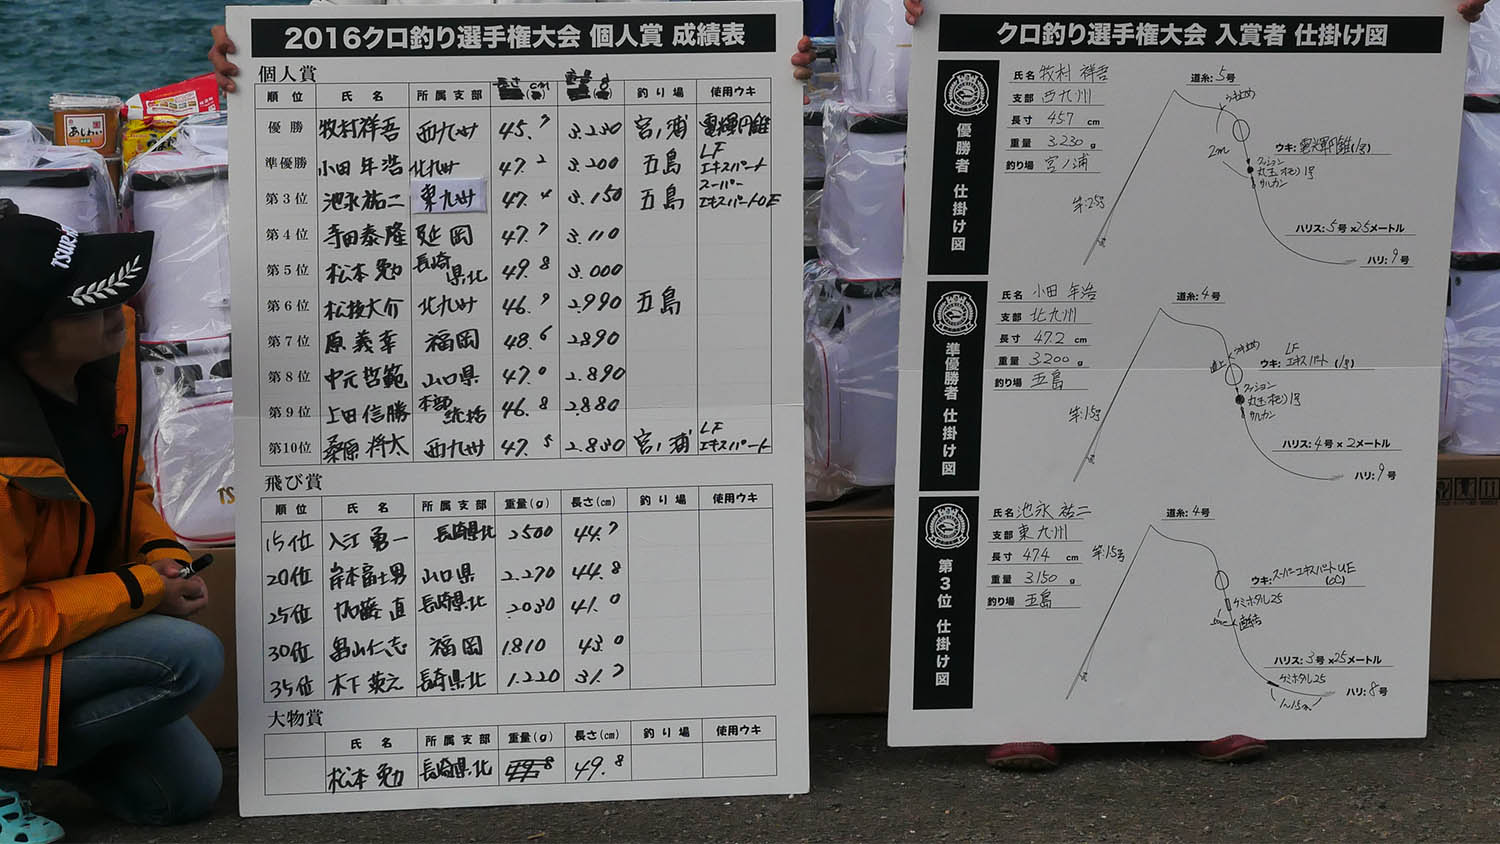 2016クロ釣り選手権大会 個人賞 成績表
個人賞
順位 氏名 所属支部 長さ(cm) 重量(g) 釣り場 使用ウキ
優勝 牧村祥吾 西九州 45.7 3.230 宮ノ浦 電輝円錐
準優勝 小田年浩 北九州 47.2 3.200 五島 LFエキスパート
第3位 池永祐二 東九州 47.4 3.150 五島 スーパーエキスパートUE
第4位 寺田泰隆 延岡 47.7 3.110
第5位 松本勉 長崎県北 49.8 3.000
第6位 松枝大介 北九州 46.7 2.990 五島
第7位 原義幸 福岡 48.6 2890
第8位 中元哲範 山口県 47.0 2.890
第9位 上田信勝 本部統括 46.8 2.880
第10位 桑原将太 西九州 47.5 2.830 宮ノ浦 LFエキスパート
飛び賞
順位 氏名 所属支部 重量(g) 長さ(cm) 釣り場 使用ウキ
15位 入江勇一 長崎県北 2500 44.7
20位 岸本冨士男 山口県 2.270 44.8
25位 加藤直 長崎県北 2030 41.0
30位 畠山仁志 福岡 1810 43.0
35位 木下英之 長崎県北 1.220 31.7
大物賞
氏名 所属支部 重量(g) 長さ(cm) 釣り場 使用ウキ
松本勉 長崎県北 49.8
クロ釣り選手権大会 入賞者 仕掛け図
優勝者 仕掛け図
氏名 牧村 祥吾
支部 西九州
長寸 457 cm
重量 3.230 g
釣り場 宮ノ浦
道糸:5号
ウキ止め
2m
ウキ:電輝円錐(1号)
クッション
丸玉オモリ1号
サルカン
竿:25号
ハリス:5号×2.5メートル
ハリ:9号
準優勝者 仕掛け図
氏名 小田 年浩
支部 北九州
長寸 47.2 cm
重量 3.200 g
釣り場 五島
道糸:4号
ウキ止め
ウキ:LFエキスパート(1号)
クッション
丸玉オモリ1号
サルカン
竿:15号
ハリス:4号×2メートル
ハリ:9号
第3位 仕掛け図
氏名 池永 祐二
支部 東九州
長寸 474 cm
重量 3150 g
釣り場 五島
道糸:4号
竿:15号
ウキ:スーパーエキスパートUE(0C)
ケミホタル25
直結
ハリス:3号×2.5メートル
ケミホタル25
ハリ:8号
あじわい
TSURI